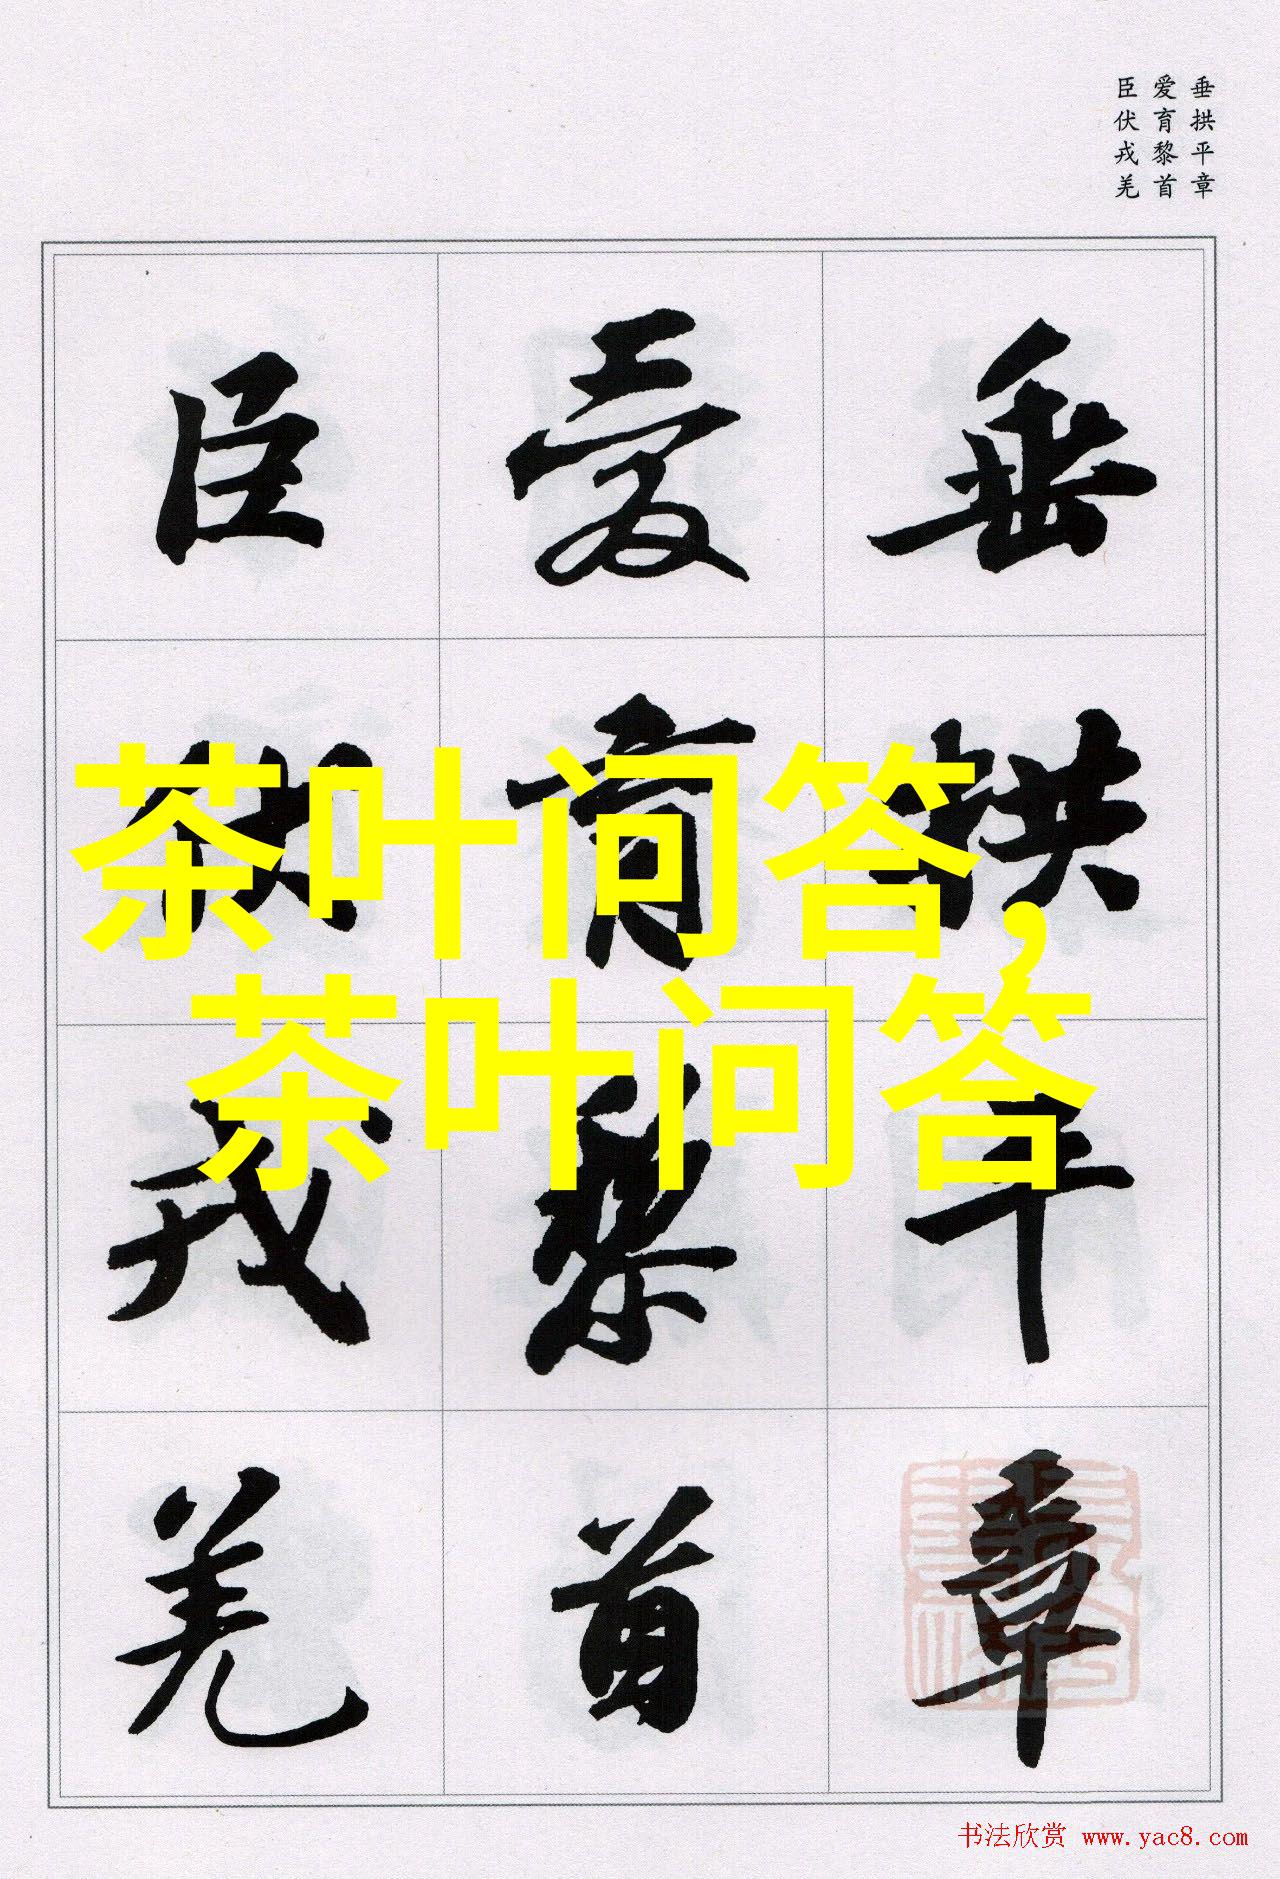 垂拱平章
爱育黎首
臣伏戎羌
垂拱平章
爱育黎首
臣伏戎羌
茶叶问答，
茶叶问答
书法欣赏 www.yac8.com